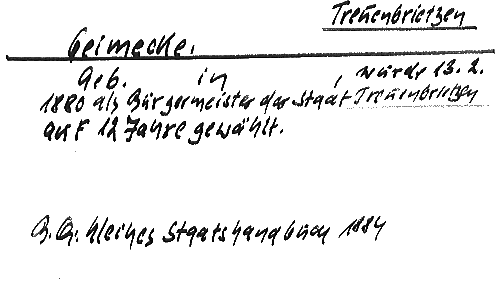 Treuenbrietzen
Geimecke.
Geb. in , wurde 13.2.
1880 als Bürgermeister der Stadt Treuenbrietzen
auf 12 Jahre gewählt.
B. Br. Kleines Staatshandbuch 1884